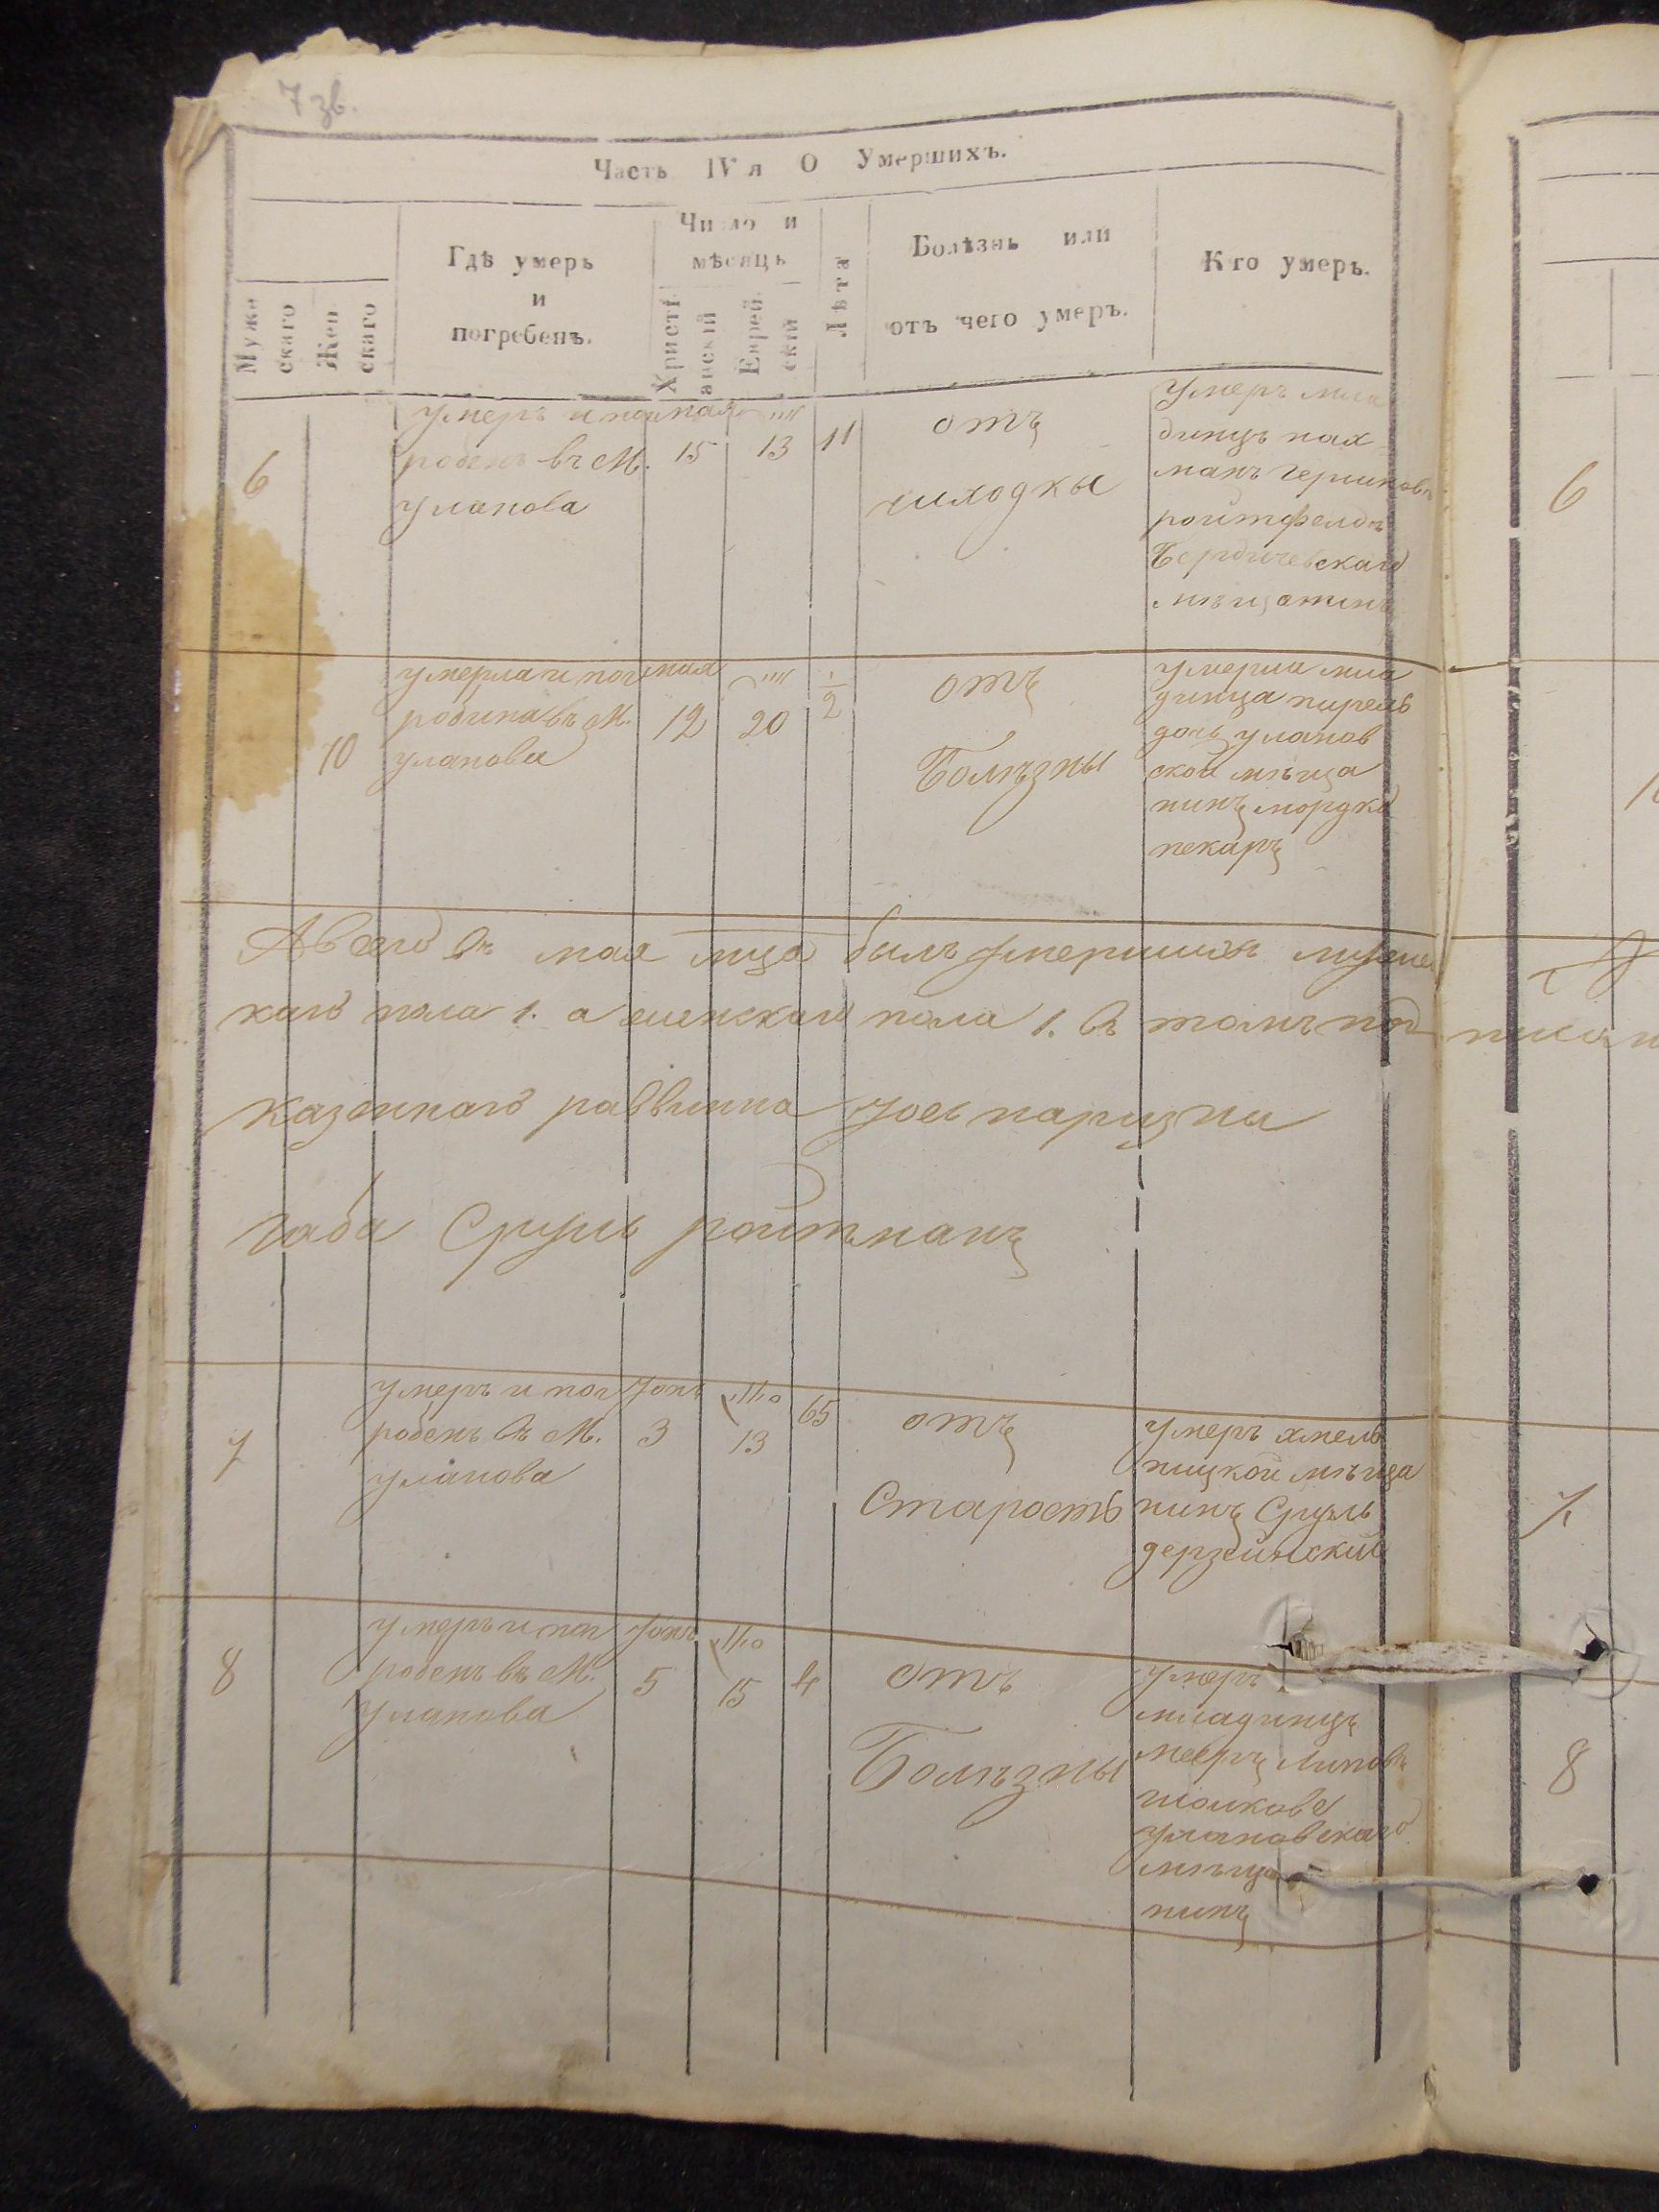 7 зв.
Часть IV я О Умершихъ.
Муже
скаго
Жен
скаго
Гдѣ умеръ
и
погребенъ.
Число и
мѣсяцъ
Христі
анскій
Еврей
скій
Лѣта
Болѣзнь или
отъ чего умеръ.
Кто умеръ.
6
умеръ и пог
робенъ въ М.
Уланова
мая
15
13
11
отъ
Умеръ мла
динцъ нах
манъ Гершковъ
ройтфелдъ
Бердичевскаго
мѣщанинъ
6
10
умерла и пог
робина въ М.
уланова
мая
12
20
1/2
отъ
Болѣзны
умерла мла
динца пирель
дочь уланов
ской мѣща
нинъ мордко
пекаръ
Авсего въ мая мца былъ умершихъ мужес
каго пола 1. а женскаго пола 1. въ томъ под
казоннаго раввина
габа Сруль ройтманъ
7
умеръ и пог
робенъ въ М.
уланова
Іонь
3
13
65
отъ
Старость
умеръ хмель
ницкой мѣща
нинъ Сруль
7.
8
умеръ и пог
робенъ въ М.
Уланова
Іонь
5
15
4
отъ
Болѣзны
Умеръ
младинцъ
мееръ Липовъ
улановскаго
мѣща
нинъ
8